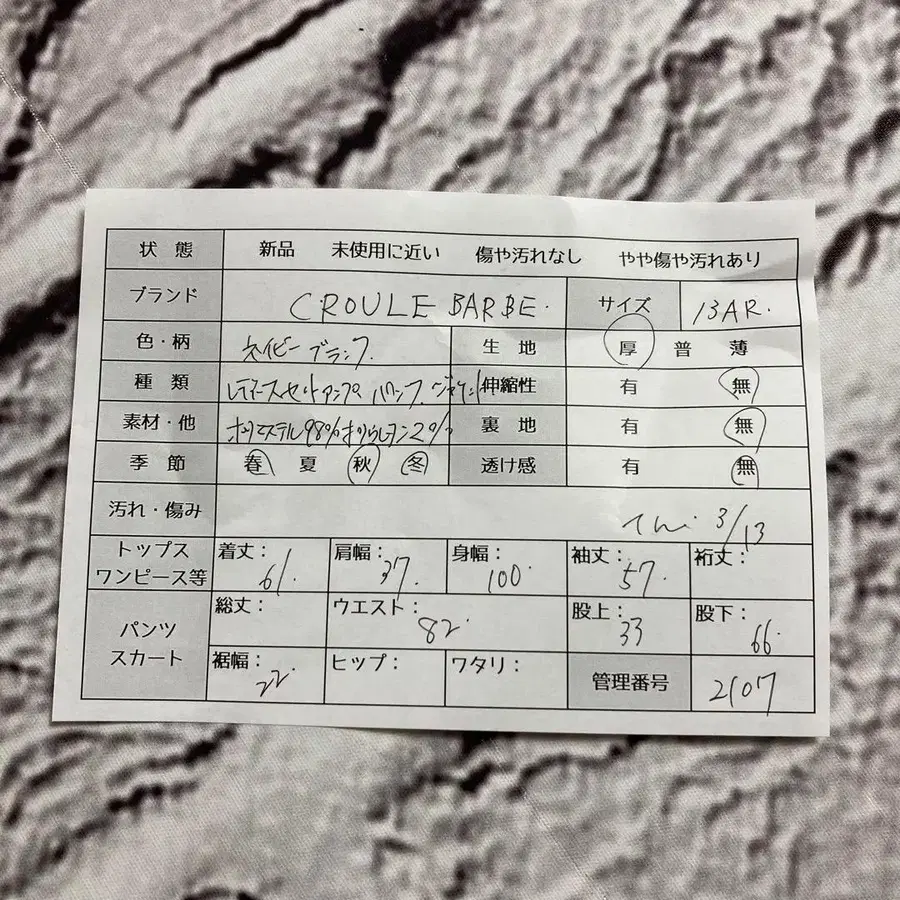 状態 新品 未使用に近い 傷や汚れなし やや傷や汚れあり
ブランド CROULE BARBE. サイズ 13AR.
色・柄 ネイビーブラック. 生地 厚 普 薄
種類 レディースセットアップ パンツ ジャケット 伸縮性 有 無
素材・他 ポリエステル98%ポリウレタン2% 裏地 有 無
季節 春 夏 秋 冬 透け感 有 無
汚れ・傷み 3/13
トップス ワンピース等 着丈: 61. 肩幅: 37. 身幅: 100. 袖丈: 57. 裄丈:
パンツ スカート 総丈: ウエスト: 82. 股上: 33 股下: 66.
裾幅: 22. ヒップ: ワタリ: 管理番号 2107